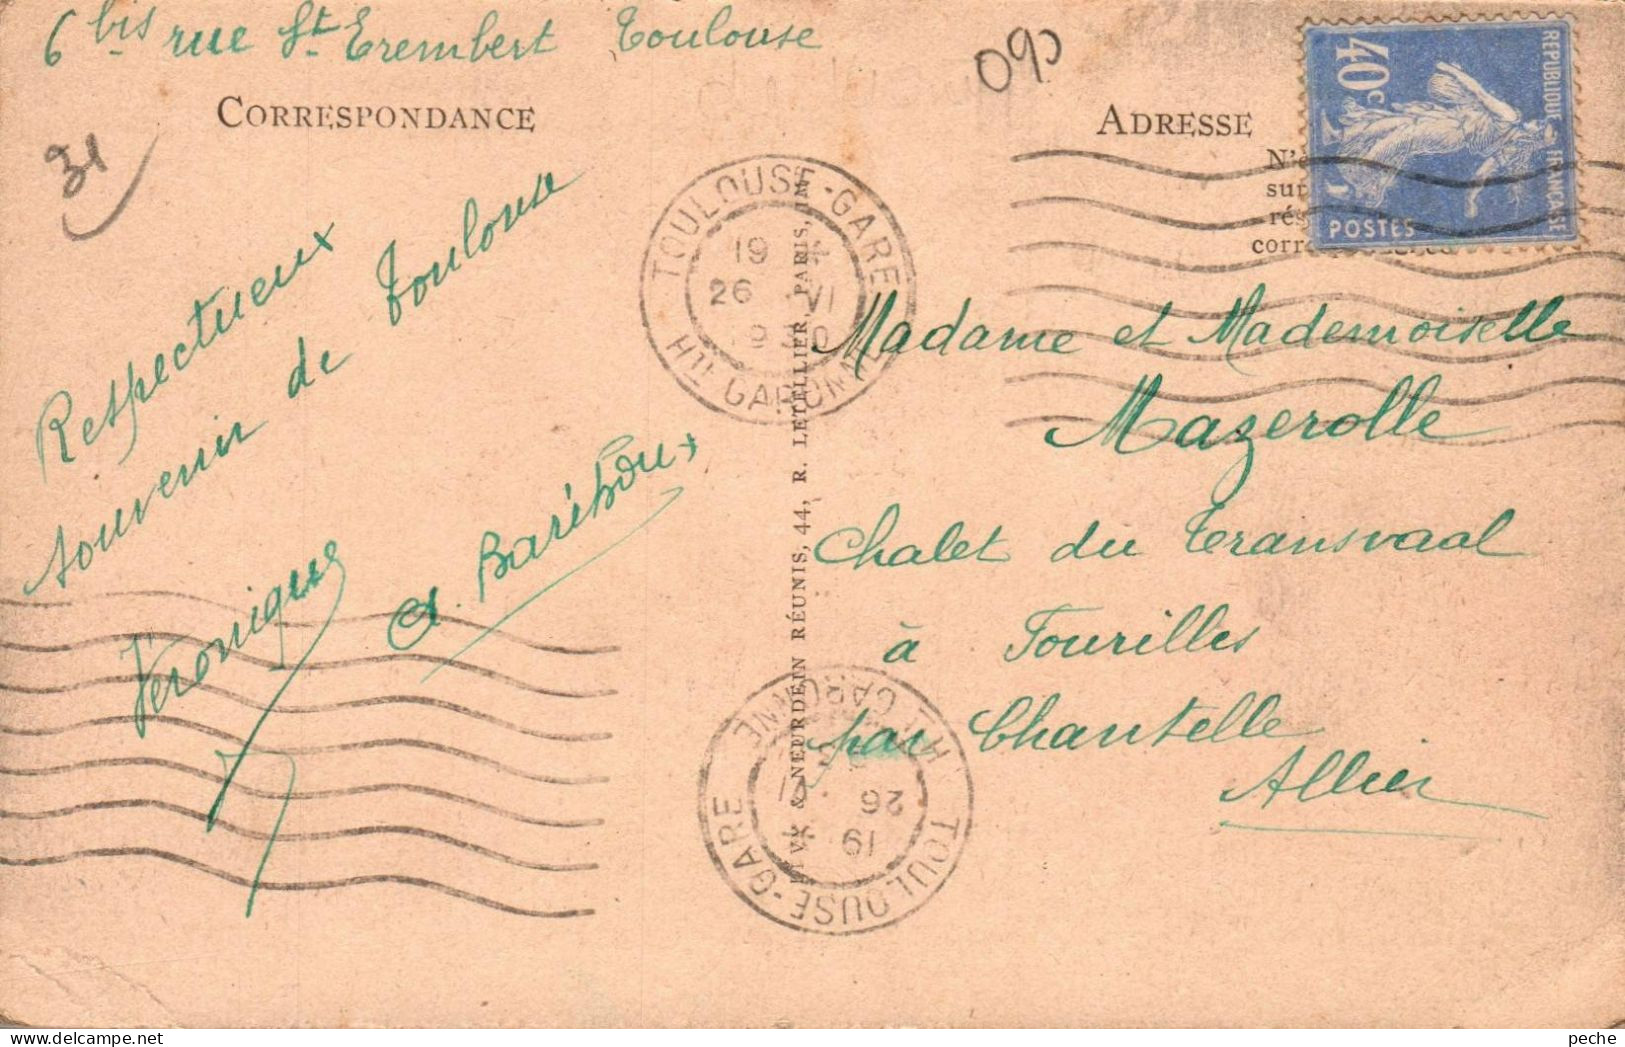 6 bis rue St Erembert Toulouse
CORRESPONDANCE
31
Respectueux
souvenir de Toulouse
Véronique
090
ADRESSE
REPUBLIQUE FRANCAISE
40c
POSTES
N'
sur
rés
corr
TOULOUSE-GARE
19
26 VI
1930
HTE GARONNE
Madame et Mademoiselle
Mazerolle
Chalet du Transvaal
à Fourilles
par Chantelle
Allier
LEVY & NEURDEIN RÉUNIS, 44, R. LETELLIER, PARIS, IMP.
TOULOUSE-GARE
19
26 VI
HTE GARONNE
peche